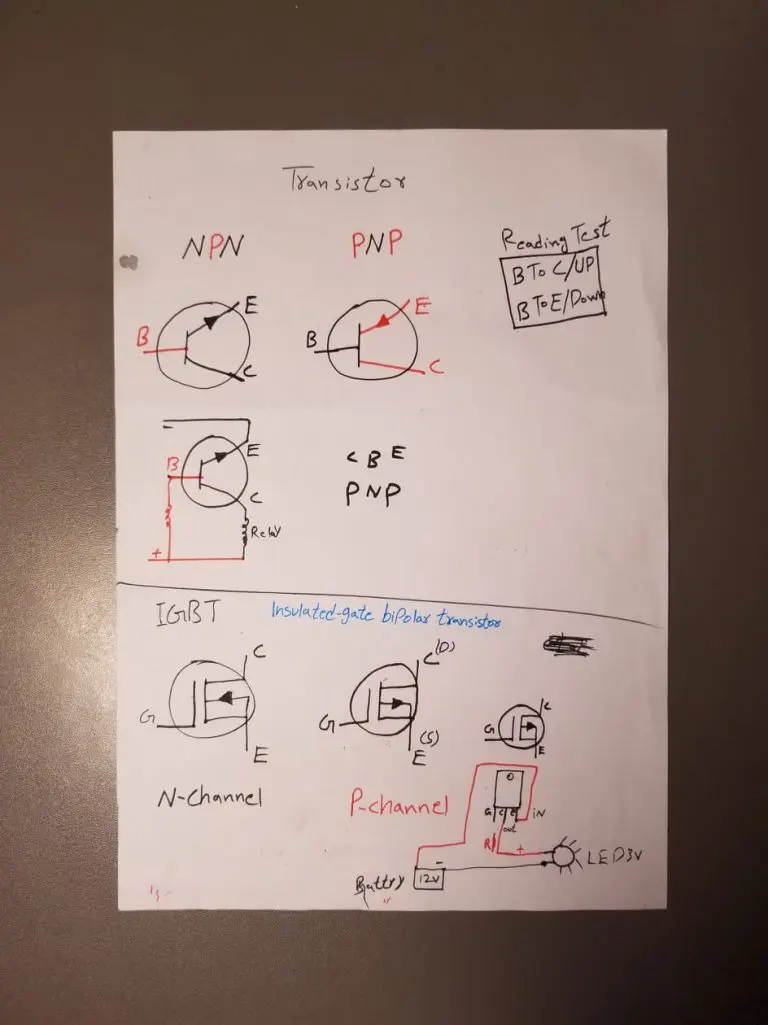 Transistor
NPN
PNP
Reading Test
B To C/UP
B To E/Down
B
E
C
B
E
C
B
E
C
Relay
-
+
C B E
PNP
IGBT
Insulated-gate bipolar transistor
G
C
E
N-Channel
G
C (D)
(S)
E
P-channel
G
C
E
G C E
iN
out
R
+
-
LED3V
Buttry
12V